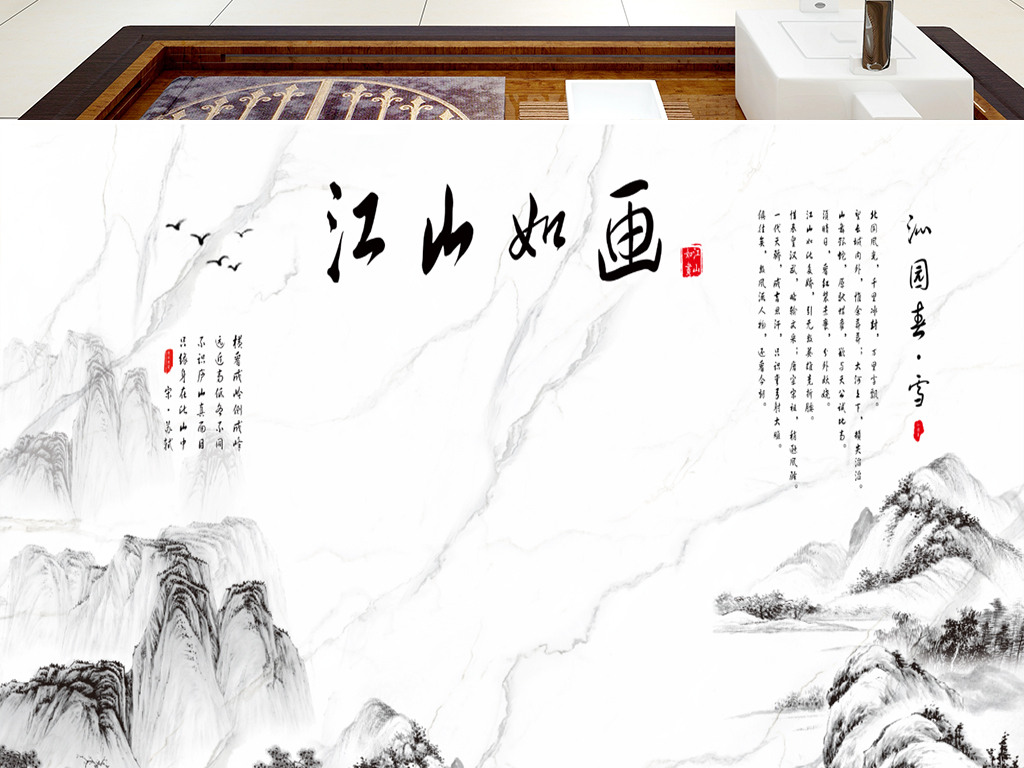 江山如画
江山
如画
沁园春·雪
北国风光，千里冰封，万里雪飘。
望长城内外，惟余莽莽；大河上下，顿失滔滔。
山舞银蛇，原驰蜡象，欲与天公试比高。
须晴日，看红装素裹，分外妖娆。
江山如此多娇，引无数英雄竞折腰。
惜秦皇汉武，略输文采；唐宗宋祖，稍逊风骚。
一代天骄，成吉思汗，只识弯弓射大雕。
俱往矣，数风流人物，还看今朝。
横看成岭侧成峰
远近高低各不同
不识庐山真面目
只缘身在此山中
宋·苏轼